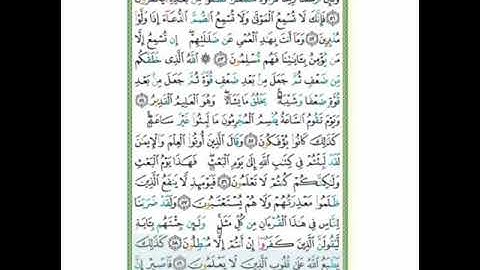 ﴿٥١﴾ فَإِنَّكَ لَا تُسْمِعُ ٱلْمَوْتَىٰ وَلَا تُسْمِعُ ٱلصُّمَّ ٱلدُّعَآءَ إِذَا وَلَّوْا۟
مُدْبِرِينَ ﴿٥٢﴾ وَمَآ أَنتَ بِهَٰدِ ٱلْعُمْىِ عَن ضَلَٰلَتِهِمْ ۖ إِن تُسْمِعُ إِلَّا
مَن يُؤْمِنُ بِـَٔايَٰتِنَا فَهُم مُّسْلِمُونَ ﴿٥٣﴾ ۞ ٱللَّهُ ٱلَّذِى خَلَقَكُم
مِّن ضَعْفٍ ثُمَّ جَعَلَ مِنۢ بَعْدِ ضَعْفٍ قُوَّةً ثُمَّ جَعَلَ مِنۢ بَعْدِ
قُوَّةٍ ضَعْفًا وَشَيْبَةً ۚ يَخْلُقُ مَا يَشَآءُ ۖ وَهُوَ ٱلْعَلِيمُ ٱلْقَدِيرُ ﴿٥٤﴾
وَيَوْمَ تَقُومُ ٱلسَّاعَةُ يُقْسِمُ ٱلْمُجْرِمُونَ مَا لَبِثُوا۟ غَيْرَ سَاعَةٍ ۚ
كَذَٰلِكَ كَانُوا۟ يُؤْفَكُونَ ﴿٥٥﴾ وَقَالَ ٱلَّذِينَ أُوتُوا۟ ٱلْعِلْمَ وَٱلْإِيمَٰنَ
لَقَدْ لَبِثْتُمْ فِى كِتَٰبِ ٱللَّهِ إِلَىٰ يَوْمِ ٱلْبَعْثِ ۖ فَهَٰذَا يَوْمُ ٱلْبَعْثِ
وَلَٰكِنَّكُمْ كُنتُمْ لَا تَعْلَمُونَ ﴿٥٦﴾ فَيَوْمَئِذٍ لَّا يَنفَعُ ٱلَّذِينَ
ظَلَمُوا۟ مَعْذِرَتُهُمْ وَلَا هُمْ يُسْتَعْتَبُونَ ﴿٥٧﴾ وَلَقَدْ ضَرَبْنَا
لِلنَّاسِ فِى هَٰذَا ٱلْقُرْءَانِ مِن كُلِّ مَثَلٍ ۚ وَلَئِن جِئْتَهُم بِـَٔايَةٍ
لَّيَقُولَنَّ ٱلَّذِينَ كَفَرُوٓا۟ إِنْ أَنتُمْ إِلَّا مُبْطِلُونَ ﴿٥٨﴾ كَذَٰلِكَ
يَطْبَعُ ٱللَّهُ عَلَىٰ قُلُوبِ ٱلَّذِينَ لَا يَعْلَمُونَ ﴿٥٩﴾ فَٱصْبِرْ إِنَّ